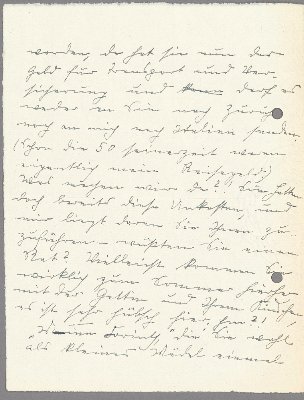 worden, da hat sie nun das
Geld für Transport und Ver-
sicherung und darf es
weder an Sie nach Zürich
noch an mich nach Italien senden.
(Schon die 50 seinerzeit waren
eigentlich meine Reisegeld)
Was machen wir da? Sie hatten
doch bereits diese Unkosten, und
mir liegt daran sie Ihnen zu-
zuführen – wüßten Sie einen
Rat? Vielleicht kommen Sie
wirklich zum Sommer hierher
mit der Gattin und Ihrem Kindchen,
es ist sehr hübsch hier, ja?!
die Sie wohl
als kleines Mädel einmal